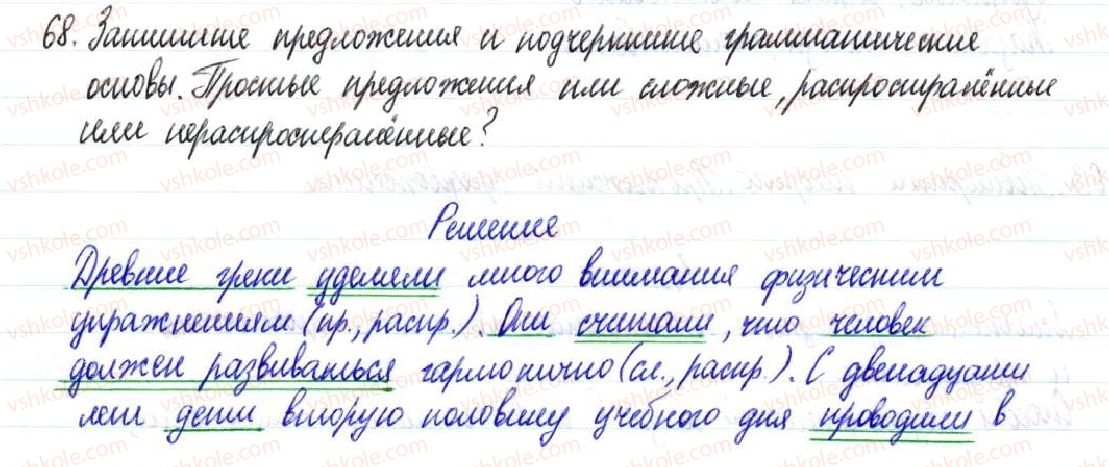 68. Запишите предложения и подчеркните грамматические
основы. Простые предложения или сложные, распространённые
или нераспространённые?
Решение
Древние греки уделяли много внимания физическим
упражнениям (пр., распр.). Они считали, что человек
должен развиваться гармонично (сл., распр.). С двенадцати
лет дети вторую половину учебного дня проводили в
vshkole.com